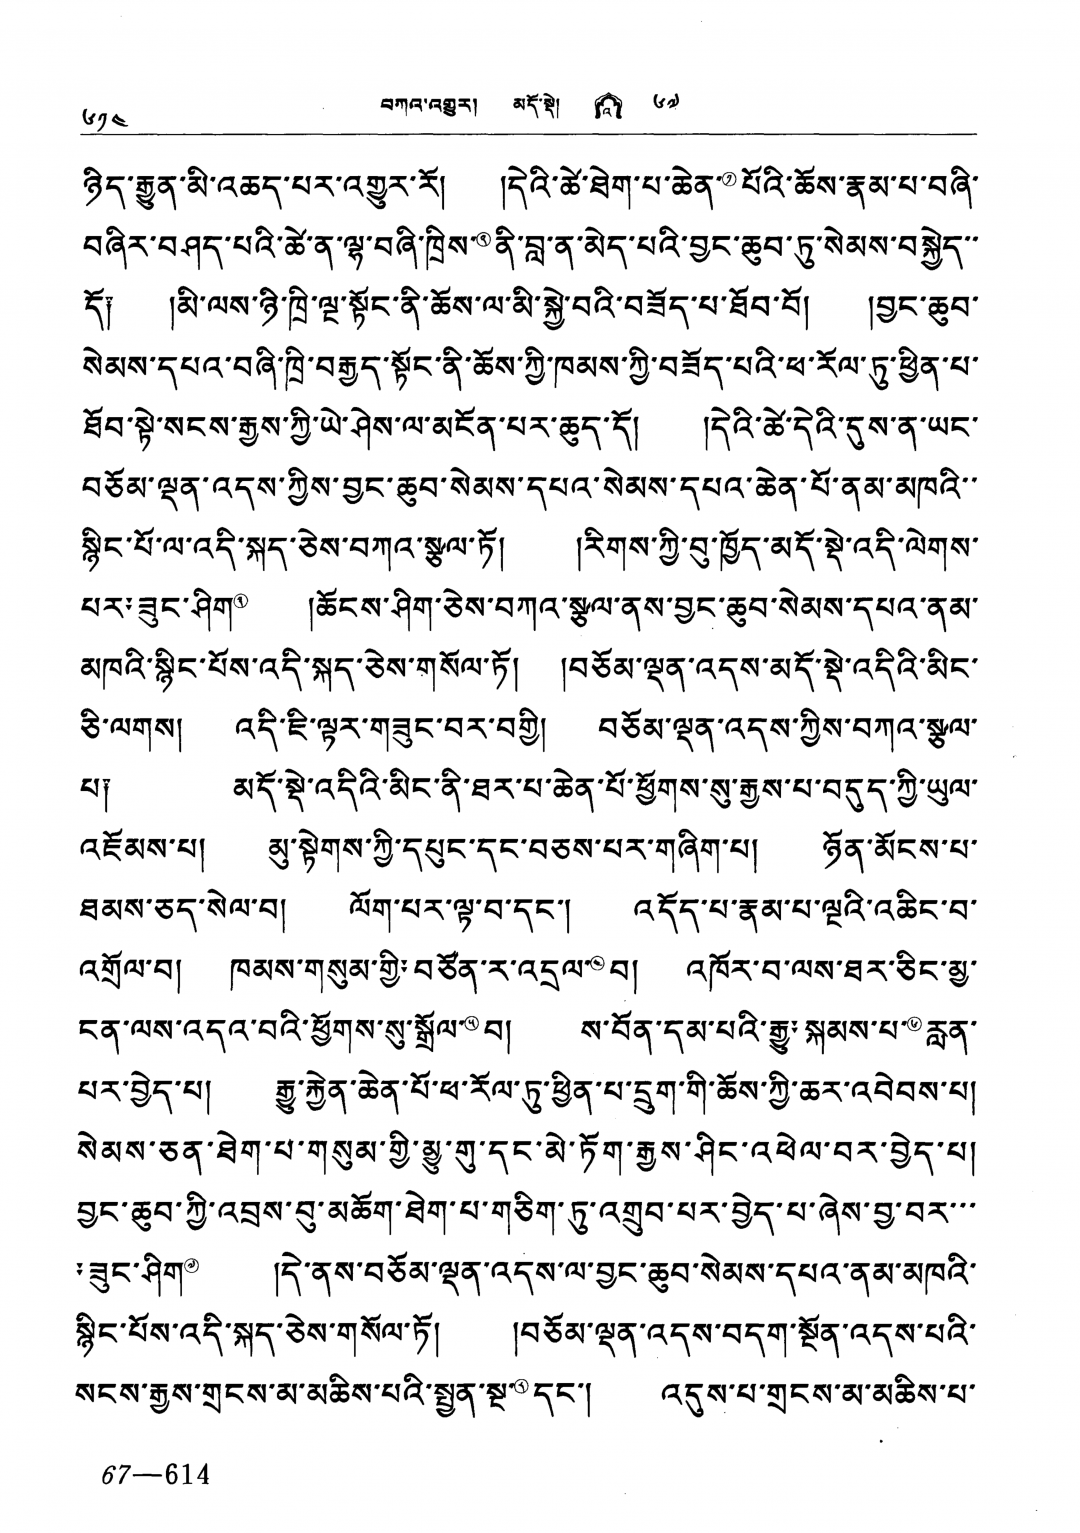 ༦༡༤ བཀའ་འགྱུར། མདོ་སྡེ། ༦༧
ཉིད་རྒྱུན་མི་འཆད་པར་འགྱུར་རོ། །དེའི་ཚེ་ཐེག་པ་ཆེན་①པོའི་ཆོས་རྣམ་པ་བཞི་
བཞིར་བཤད་པའི་ཚེ་ན་ལྷ་བཞི་ཁྲིས་②ནི་བླ་ན་མེད་པའི་བྱང་ཆུབ་ཏུ་སེམས་བསྐྱེད་་
དོ༑ །མི་ལས་ཉི་ཁྲི་ལྔ་སྟོང་ནི་ཆོས་ལ་མི་སྐྱེ་བའི་བཟོད་པ་ཐོབ་བོ། །བྱང་ཆུབ་
སེམས་དཔའ་བཞི་ཁྲི་བརྒྱད་སྟོང་ནི་ཆོས་ཀྱི་ཁམས་ཀྱི་བཟོད་པའི་ཕ་རོལ་ཏུ་ཕྱིན་པ་
ཐོབ་སྟེ་སངས་རྒྱས་ཀྱི་ཡེ་ཤེས་ལ་མངོན་པར་ཆུད་དོ། །དེའི་ཚེ་དེའི་དུས་ན་ཡང་
བཅོམ་ལྡན་འདས་ཀྱིས་བྱང་ཆུབ་སེམས་དཔའ་སེམས་དཔའ་ཆེན་པོ་ནམ་མཁའི་་
སྙིང་པོ་ལ་འདི་སྐད་ཅེས་བཀའ་སྩལ་ཏོ། །རིགས་ཀྱི་བུ་ཁྱོད་མདོ་སྡེ་འདི་ལེགས་
པར་༔ཟུང་ཤིག③ །ཆོངས་ཤིག་ཅེས་བཀའ་སྩལ་ནས་བྱང་ཆུབ་སེམས་དཔའ་ནམ་
མཁའི་སྙིང་པོས་འདི་སྐད་ཅེས་གསོལ་ཏོ། །བཅོམ་ལྡན་འདས་མདོ་སྡེ་འདིའི་མིང་
ཅི་ལགས། འདི་ཇི་ལྟར་གཟུང་བར་བགྱི། བཅོམ་ལྡན་འདས་ཀྱིས་བཀའ་སྩལ་
པ༑ མདོ་སྡེ་འདིའི་མིང་ནི་ཐར་པ་ཆེན་པོ་ཕྱོགས་སུ་རྒྱས་པ་བདུད་ཀྱི་ཡུལ་
འཇོམས་པ། མུ་སྟེགས་ཀྱི་དཔུང་དང་བཅས་པར་གཞིག་པ། ཉོན་མོངས་པ་
ཐམས་ཅད་སེལ་བ། ལོག་པར་ལྟ་བ་དང་། འདོད་པ་རྣམ་པ་ལྔའི་འཆིང་བ་
འགྲོལ་བ། ཁམས་གསུམ་གྱི༔བཙོན་ར་འདྲལ་④བ། འཁོར་བ་ལས་ཐར་ཅིང་མྱ་
ངན་ལས་འདའ་བའི་ཕྱོགས་སུ་སྒྲོལ་⑤བ། ས་བོན་དམ་པའི་རྒྱུ༔སྐམས་པ་⑥རླན་
པར་བྱེད་པ། རྒྱུ་རྐྱེན་ཆེན་པོ་ཕ་རོལ་ཏུ་ཕྱིན་པ་དྲུག་གི་ཆོས་ཀྱི་ཆར་འབེབས་པ།
སེམས་ཅན་ཐེག་པ་གསུམ་གྱི་མྱུ་གུ་དང་མེ་ཏོག་རྒྱས་ཤིང་འཕེལ་བར་བྱེད་པ།
བྱང་ཆུབ་ཀྱི་འབྲས་བུ་མཆོག་ཐེག་པ་གཅིག་ཏུ་འགྲུབ་པར་བྱེད་པ་ཞེས་བྱ་བར་་་
༔ཟུང་ཤིག⑦ །དེ་ནས་བཅོམ་ལྡན་འདས་ལ་བྱང་ཆུབ་སེམས་དཔའ་ནམ་མཁའི་
སྙིང་པོས་འདི་སྐད་ཅེས་གསོལ་ཏོ། །བཅོམ་ལྡན་འདས་བདག་སྔོན་འདས་པའི་
སངས་རྒྱས་གྲངས་མ་མཆིས་པའི་སྤྱན་སྔ་⑧དང་། འདུས་པ་གྲངས་མ་མཆིས་པ་
67—614